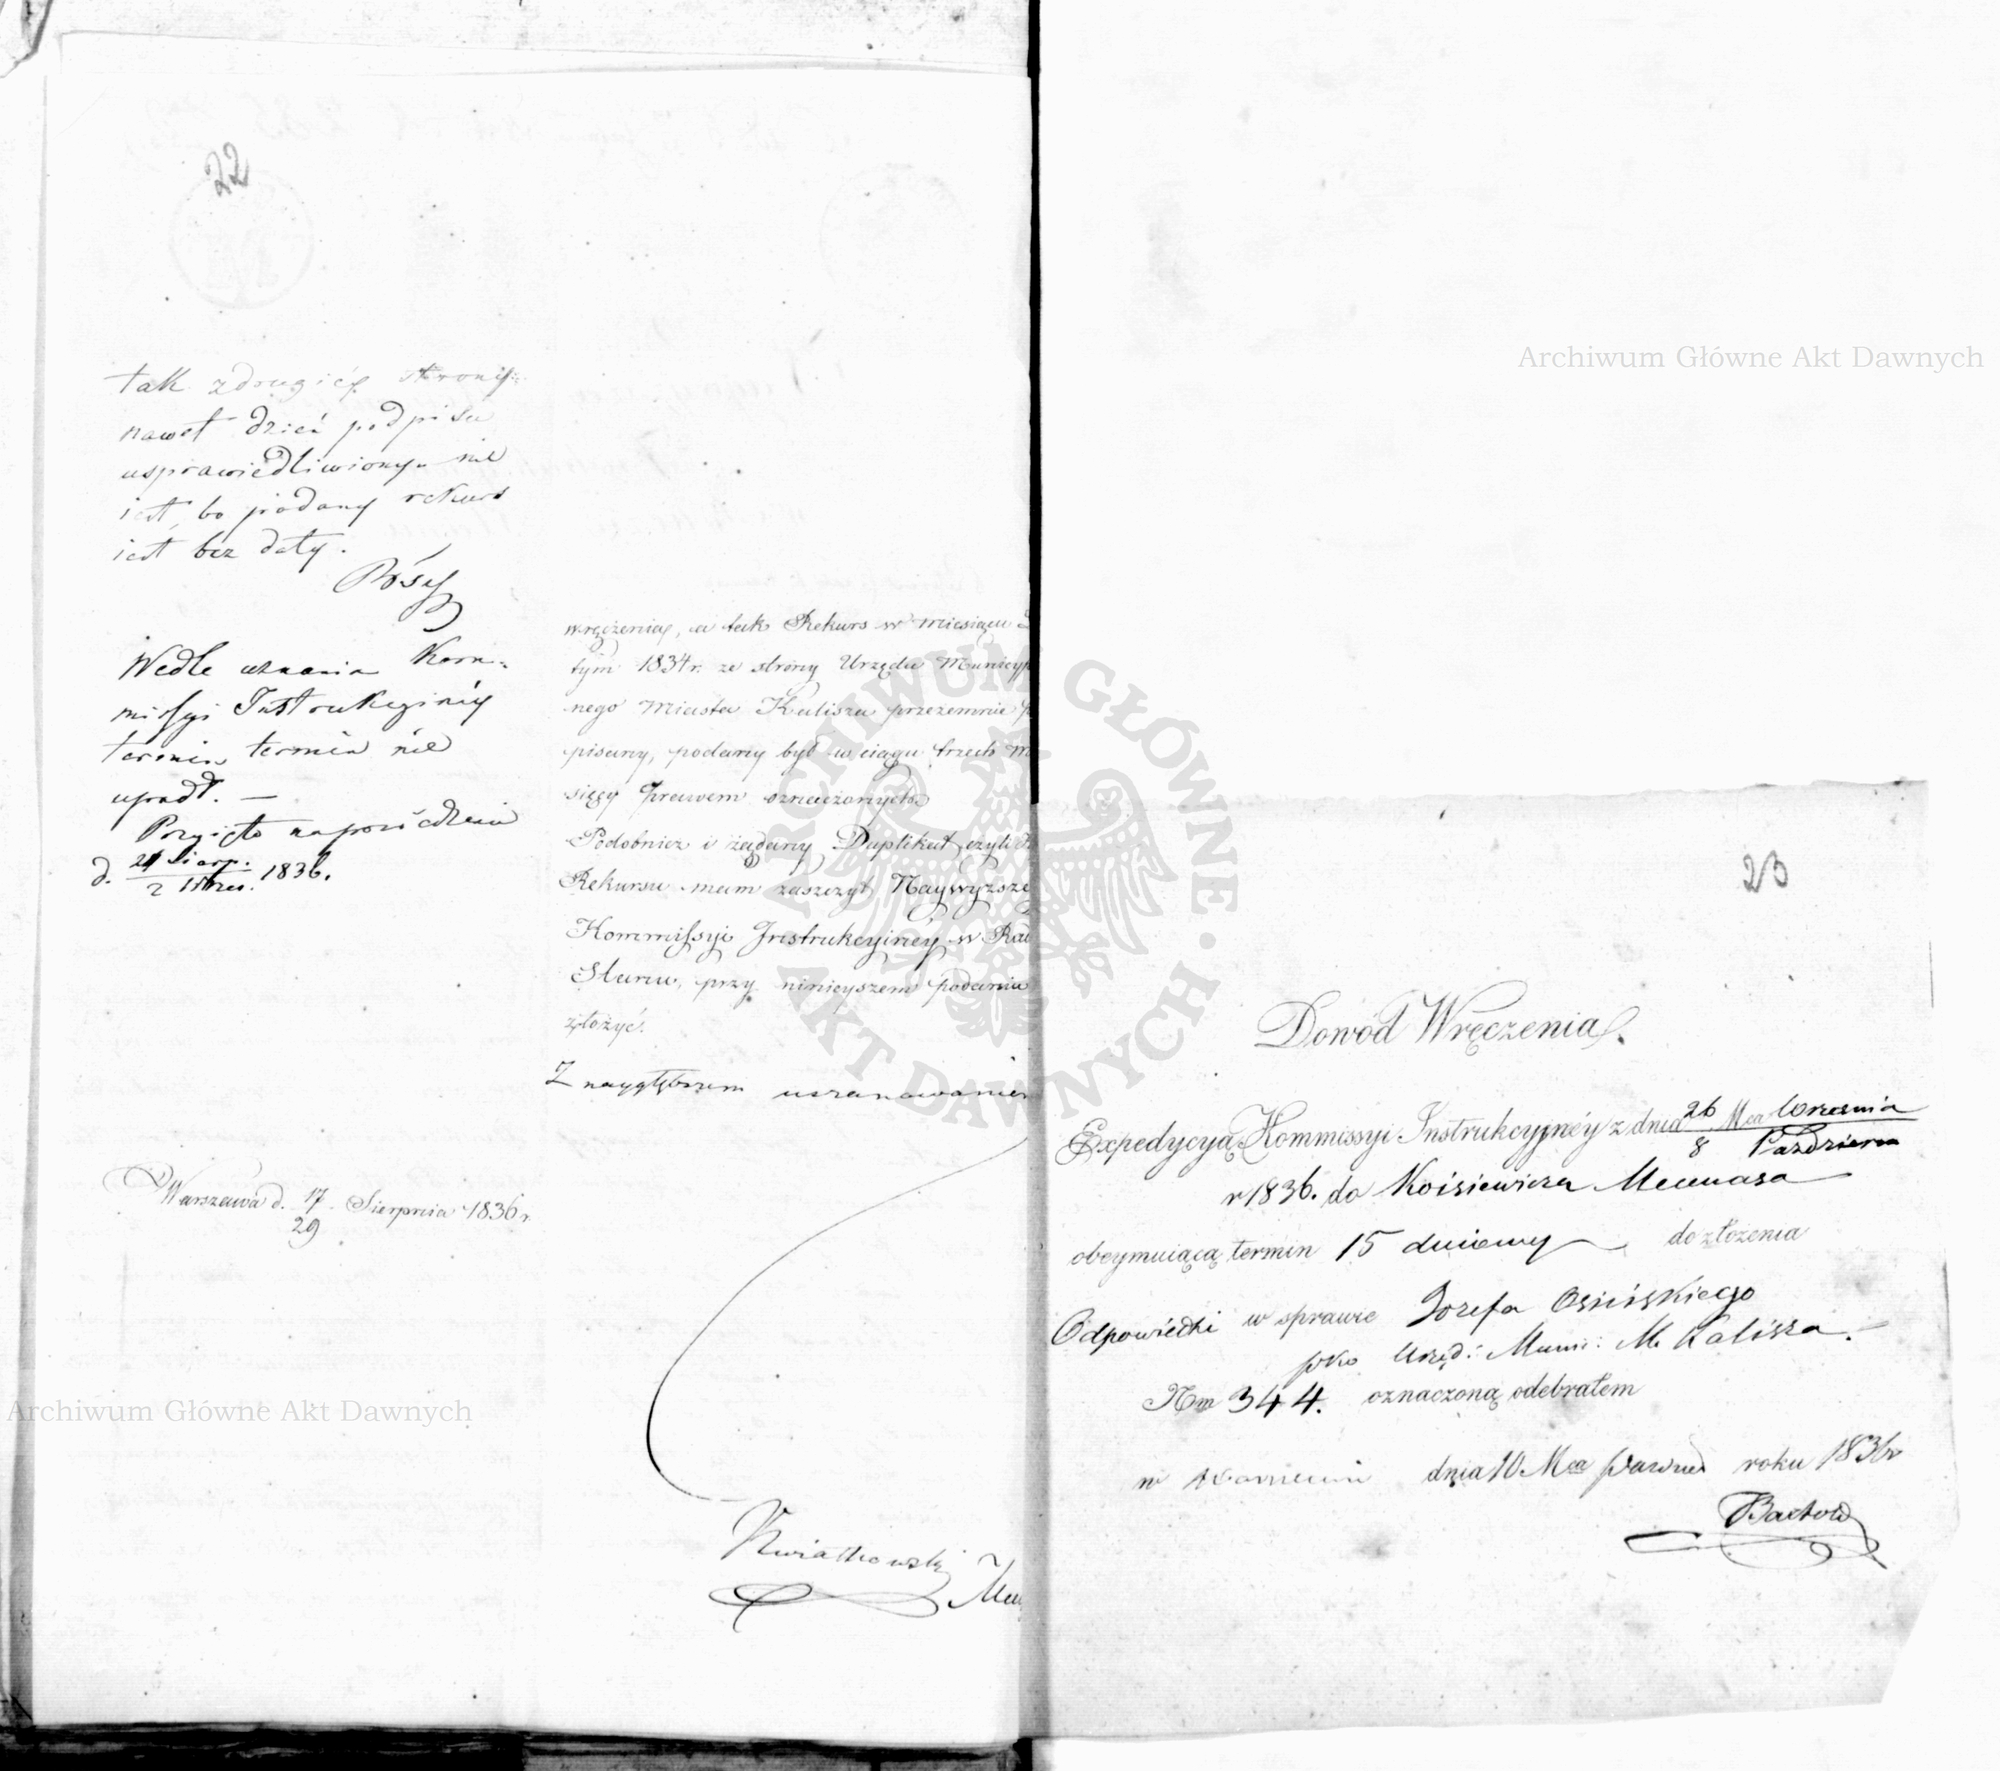 22
tak z drugiéy strony
nawet dzień podpisu
usprawiedliwionym nie
iest, bo podany rekurs
iest bez daty.
Wedle uznania Kom-
missyi Instrukcyinéy
termin nie
upadł. —
Przyięto na posiedzeniu
d. 21 Sierp. / 2 Wrześ. 1836.
wręczenia, a tak Rekurs w miesiącu
tym 1834 r. ze strony Urzędu Municyp
nego Miasta Kalisza przezemnie p
pisany, podany był w ciągu trzech m
sięcy prawem oznaczonych
Podobnież i żądany Duplikat czyli
Rekursu mam zaszczyt Naywyższe
Kommissyi Instrukcyinéy w Rad
Stanu, przy ninieyszem podaniu
złożyć.
Z naygłębszem uszanowaniem
Warszawa d. 17/29 Sierpnia 1836 r.
Kwiatkowski
23
Dowód Wręczenia.
Expedycyą Kommissyi Instrukcyjnéy z dnia 26 Mca Września / 8 Paździer
r 1836. do Koisiewicza Mecenasa
obeymuiącą termin 15 dniowy do złożenia
Odpowiedzi w sprawie Jozefa Osińskiego
pko Urzęd: Muni: M. Kalisza. —
Nm 344. oznaczoną odebrałem
w dnia 10 Mca roku 1836
Archiwum Główne Akt Dawnych
Archiwum Główne Akt Dawnych
ARCHIWUM GŁÓWNE · AKT DAWNYCH ·